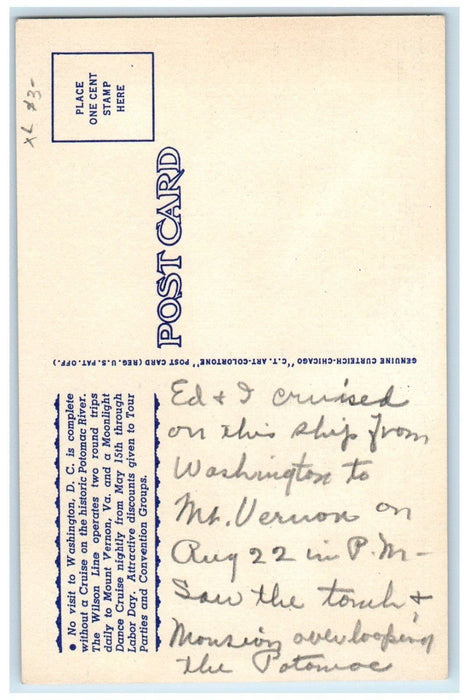 PLACE
ONE CENT
STAMP
HERE
XL $3-
POST CARD
GENUINE CURTEICH-CHICAGO "C.T. ART-COLORTONE" POST CARD (REG. U.S. PAT. OFF.)
● No visit to Washington, D. C. is complete
without a Cruise on the historic Potomac River.
The Wilson Line operates two round trips
daily to Mount Vernon, Va. and a Moonlight
Dance Cruise nightly from May 15th through
Labor Day. Attractive discounts given to Tour
Parties and Convention Groups.
Ed & I cruised
on this ship from
Washington to
Mt. Vernon on
Aug 22 in P.M-
Saw the tomb &
Mansion overlooping
the Potomac